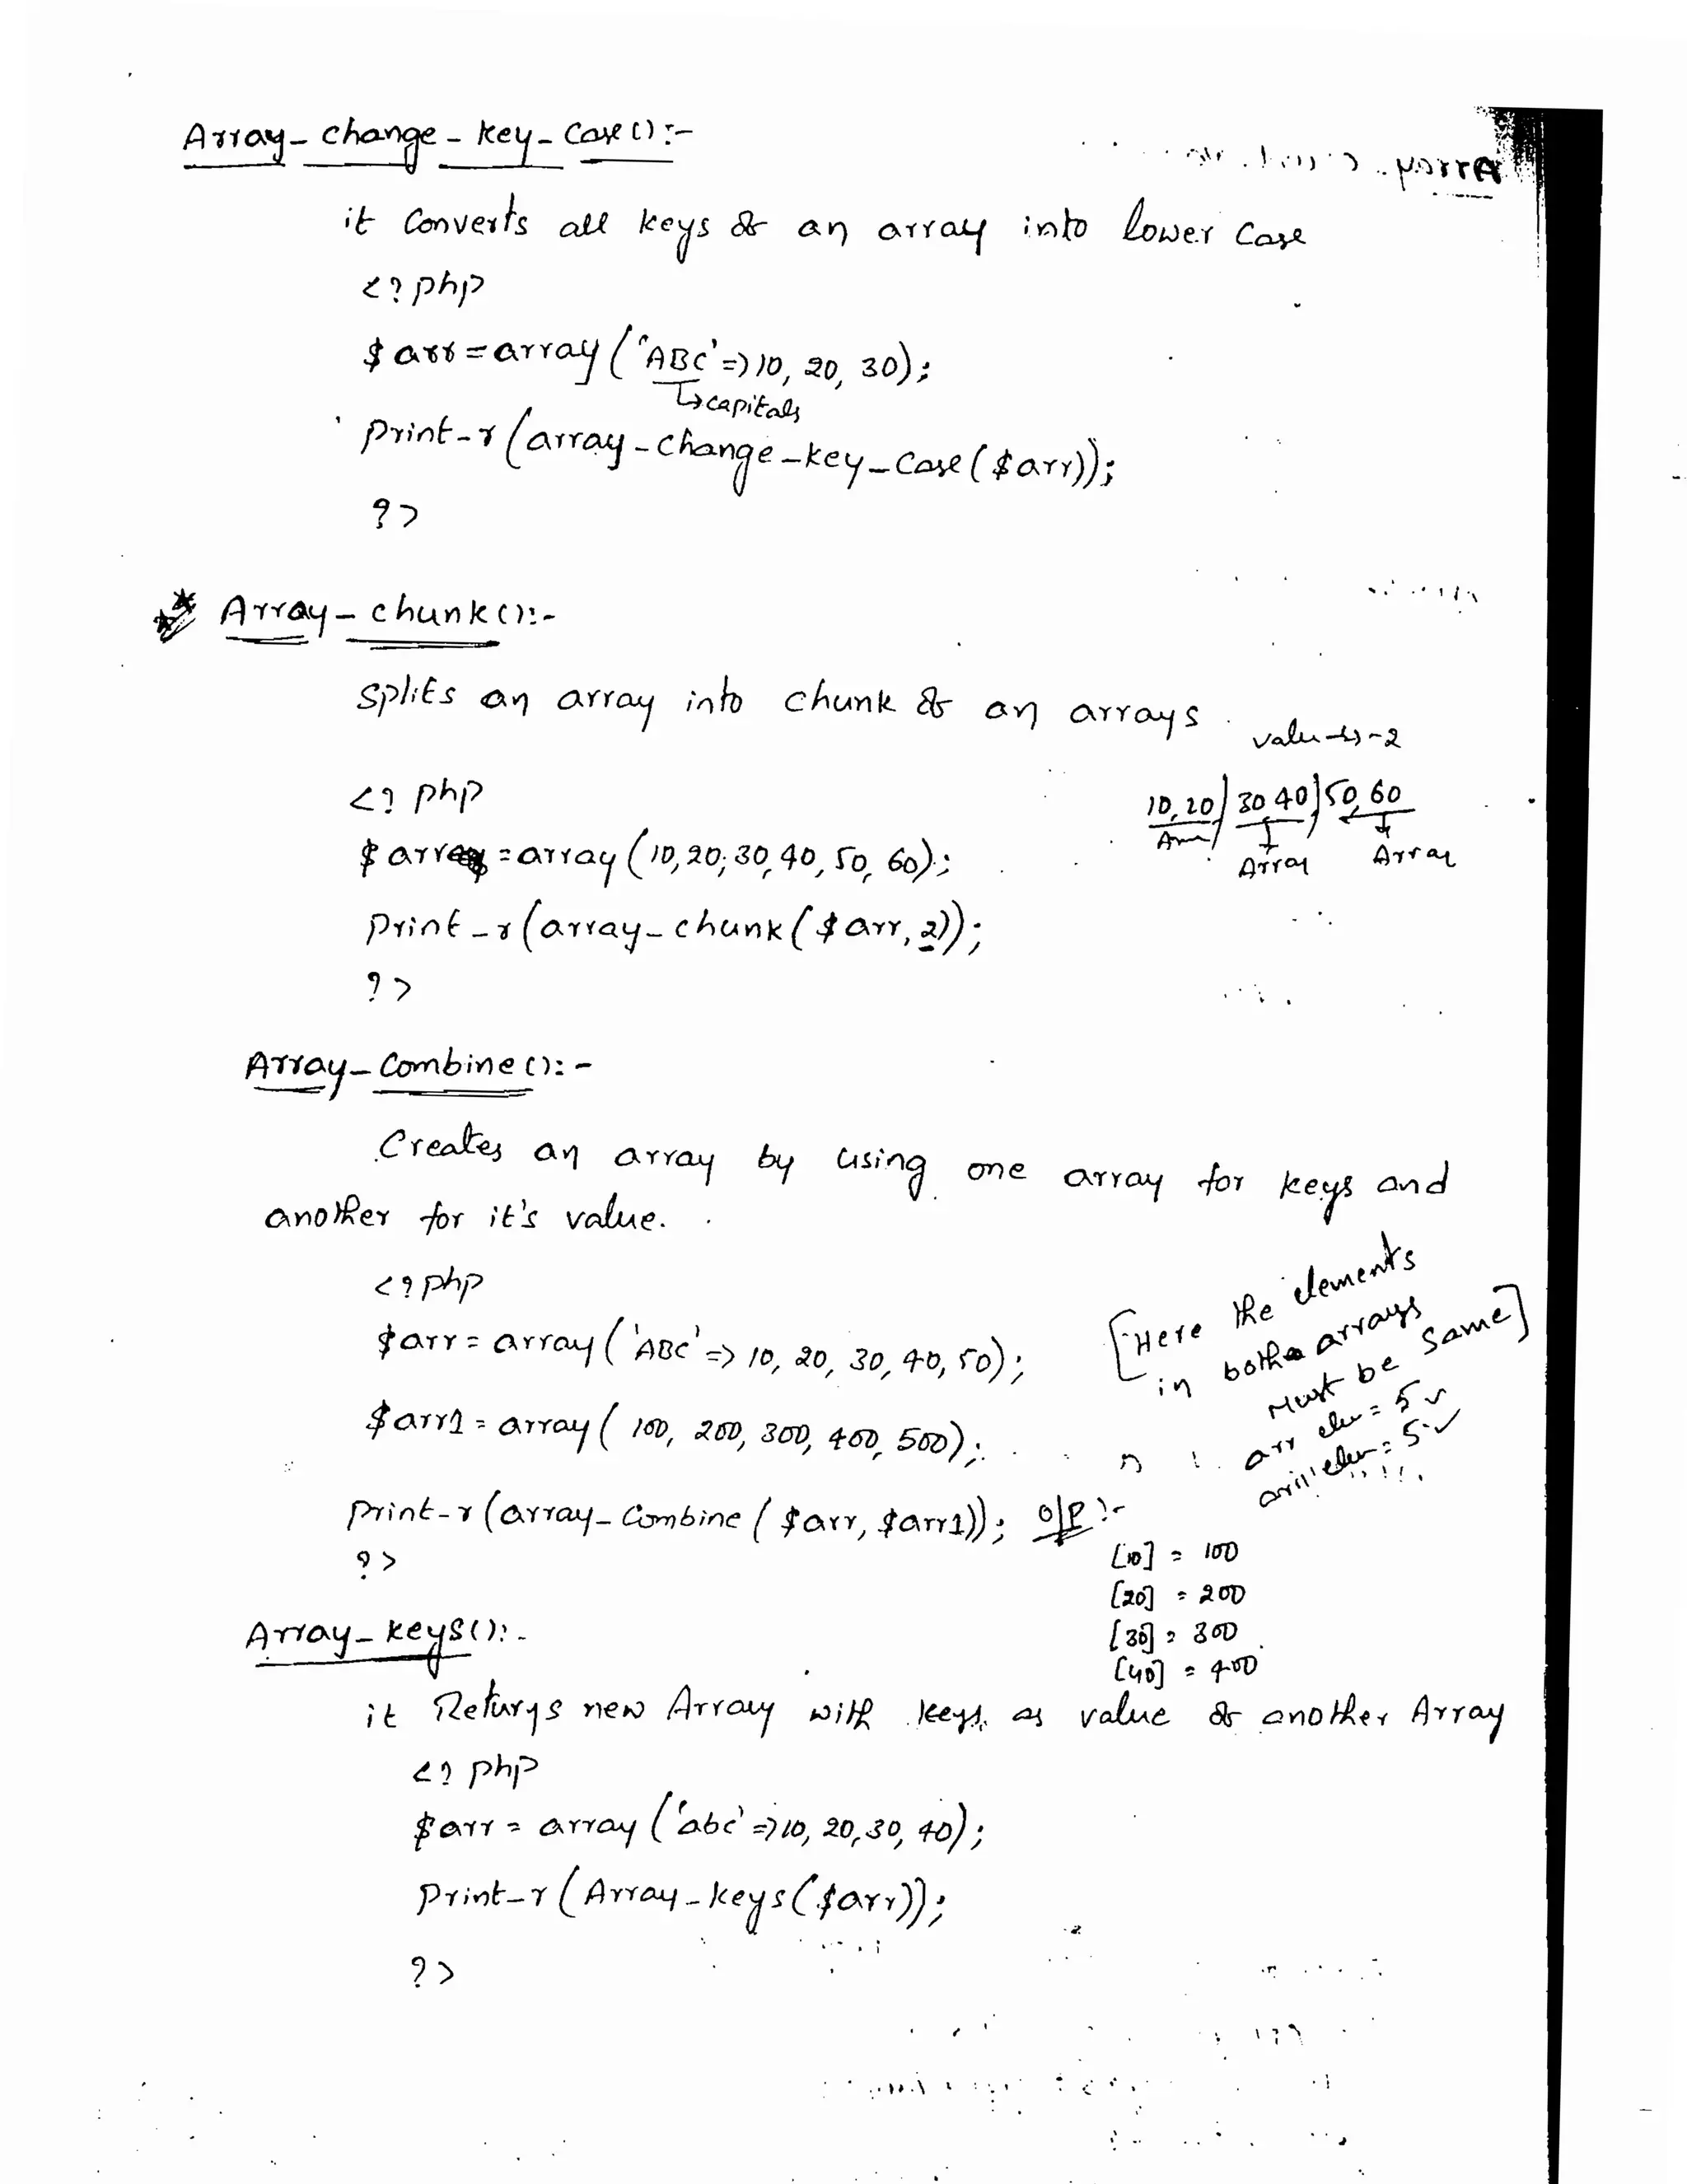 Array_change_key_Case():-
it Converts all keys of an array into lower Case
<?php
$arr=array('ABC'=>10, 20, 30);
↳capitals
print_r(array_change_key_Case($arr));
?>
** Array_chunk():-
Splits an array into chunk of an arrays.
value ↳ -2
<? php
10,20) 30 40) 50,60
Array Array
$arr=array(10,20,30,40,50,60);
print_r(array_chunk($arr,2));
?>
Array_Combine():-
Creates an array by using one array for keys and
another for it's value.
<?php
$arr = array('ABC'=> 10, 20, 30, 40, 50);
[Here the elements
in both arrays
Must be Same]
arr ele = 5 ✓
arr1 ele = 5 ✓
$arr1 = array( 100, 200, 300, 400, 500);
print_r(array_Combine($arr, $arr1)); o/p:-
?>
[10] = 100
[20] = 200
[30] = 300
[40] = 400
Array_keys():-
it Returns new Array with keys as value of another Array
<? php
$arr = array('abc'=>10, 20,30, 40);
Print_r(Array_keys($arr));
?>